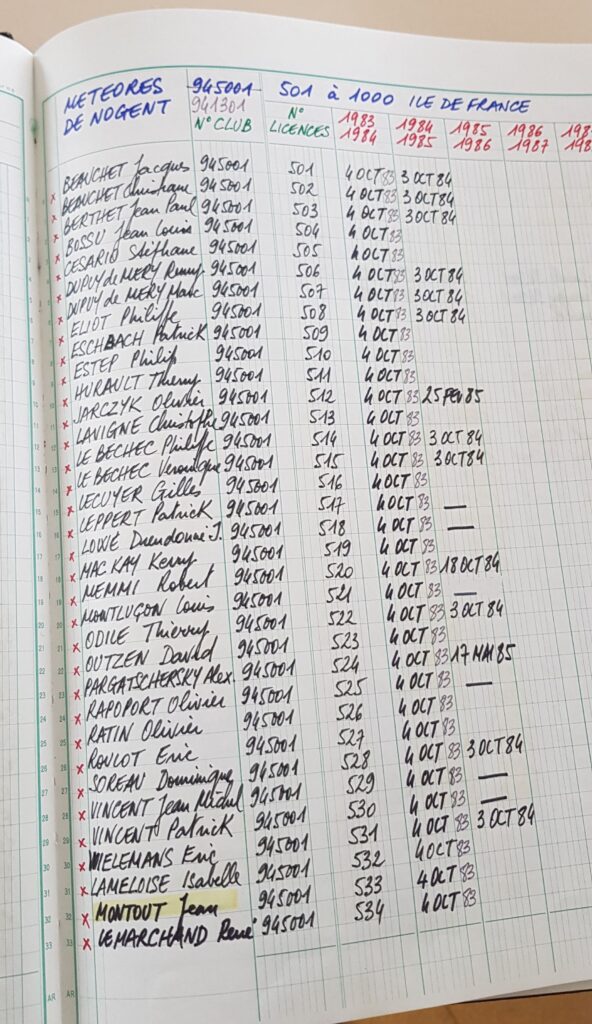 METEORES 945001 501 à 1000 ILE DE FRANCE
DE NOGENT 941301 N° 1983 1984 1985 1986
N° CLUB LICENCES 1984 1985 1986 1987
x BEAUCHET Jacques 945001 501 4 OCT 83 3 OCT 84
x BEAUCHET Christiane 945001 502 4 OCT 83 3 OCT 84
x BERTHET Jean Paul 945001 503 4 OCT 83 3 OCT 84
x BOSSU Jean Louis 945001 504 4 OCT 83
x CESARIO Stéphane 945001 505 4 OCT 83
x DUPUY de MERY Remy 945001 506 4 OCT 83 3 OCT 84
x DUPUY de MERY Marc 945001 507 4 OCT 83 3 OCT 84
x ELIOT Philippe 945001 508 4 OCT 83 3 OCT 84
x ESCHBACH Patrick 945001 509 4 OCT 83
x ESTEP Philip 945001 510 4 OCT 83
x HURAULT Thierry 945001 511 4 OCT 83
x JARCZYK Olivier 945001 512 4 OCT 83 25 FEV 85
x LAVIGNE Christophe 945001 513 4 OCT 83
x LE BECHEC Philippe 945001 514 4 OCT 83 3 OCT 84
x LE BECHEC Veronique 945001 515 4 OCT 83 3 OCT 84
x LECUYER Gilles 945001 516 4 OCT 83
x LEPPERT Patrick 945001 517 4 OCT 83 —
x LOWE Dieudonné J. 945001 518 4 OCT 83 —
x MAC KAY Kerry 945001 519 4 OCT 83
x MEMMI Robert 945001 520 4 OCT 83 18 OCT 84
x MONTLUÇON Louis 945001 521 4 OCT 83 —
x ODILE Thierry 945001 522 4 OCT 83 3 OCT 84
x OUTZEN David 945001 523 4 OCT 83
x PARGATSCHERSKY Alex. 945001 524 4 OCT 83 17 MAI 85
x RAPOPORT Olivier 945001 525 4 OCT 83 —
x RATIN Olivier 945001 526 4 OCT 83
x ROULOT Eric 945001 527 4 OCT 83
x SOREAU Dominique 945001 528 4 OCT 83 3 OCT 84
x VINCENT Jean Michel 945001 529 4 OCT 83 —
x VINCENT Patrick 945001 530 4 OCT 83 —
x WIELEMANS Eric 945001 531 4 OCT 83 3 OCT 84
x LAMELOISE Isabelle 945001 532 4 OCT 83
x MONTOUT Jean 945001 533 4 OCT 83
x LEMARCHAND René 945001 534 4 OCT 83
AR AR